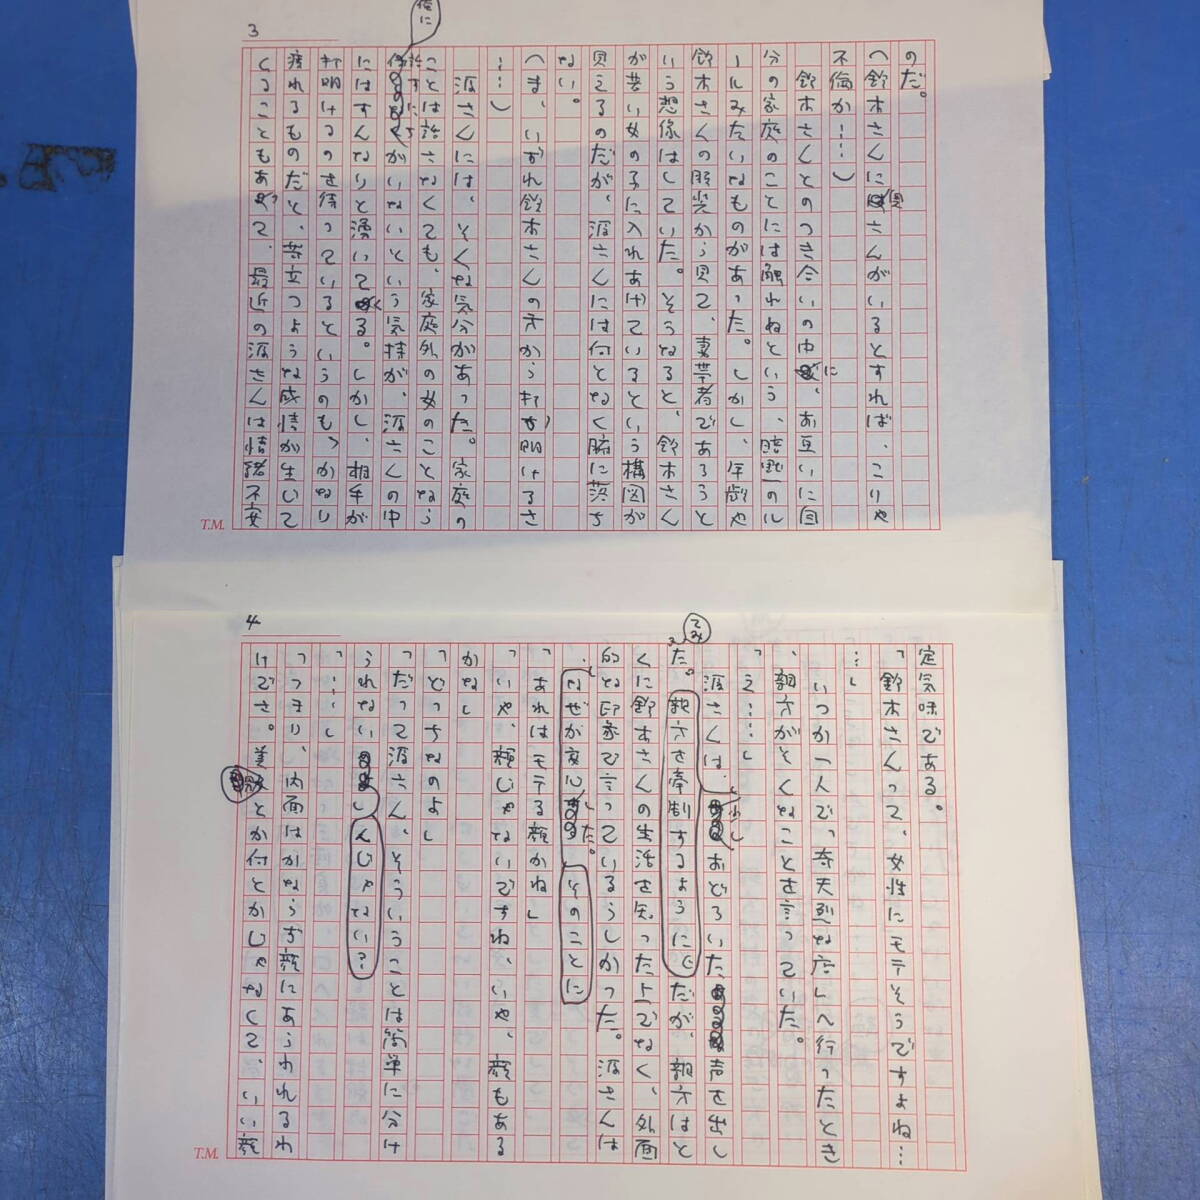 3
のだ。
へ鈴木さんに奥さんがいるとすれば、こりゃ
不倫か……〉
鈴木さんとのつき合いの中に、お互いに自
分の家庭のことには触れぬという、暗黙のル
ールみたいなものがあった。しかし、年齢や
鈴木さんの服装から見て、妻帯者であろうと
いう想像はしていた。そうなると、鈴木さん
が若い女の子に入れあげているという構図が
見えるのだが、源さんには何となく腑に落ち
ない。
へま、いずれ鈴木さんの方から打ち明けるさ
……〉
源さんには、そんな気分があった。家庭の
ことは話さなくても、家庭外の女のことなら
俺に
がいないという気持が、源さんの中
にはすんなりと湧いてくる。しかし、相手が
打明けるのを待っているというのも、かなり
疲れるものだと、苛立つような感情が生じて
くることもあって、最近の源さんは情緒不安
T.M.
4
定気味である。
「鈴木さんって、女性にモテそうですよね…
…」
いつか一人で〝奇天烈な店〟へ行ったとき
、親方がそんなことを言っていた。
「え……」
源さんは、少しおどろいた声を出し
てみた。親方を牽制するようにだが、親方はと
くに鈴木さんの生活を知った上でなく、外面
的な印象で言っているらしかった。源さんは
、そのことになぜか安心した。
「あれはモテる顔かね」
「いや、顔じゃないですね、いや、顔もある
かな」
「どっちなのよ」
「だって源さん、そういうことは簡単に分け
られないんじゃない?」
「……」
「つまり、内面はかならず顔にあらわれるわ
けでさ。美とか何とかじゃなくて、いい顔
T.M.